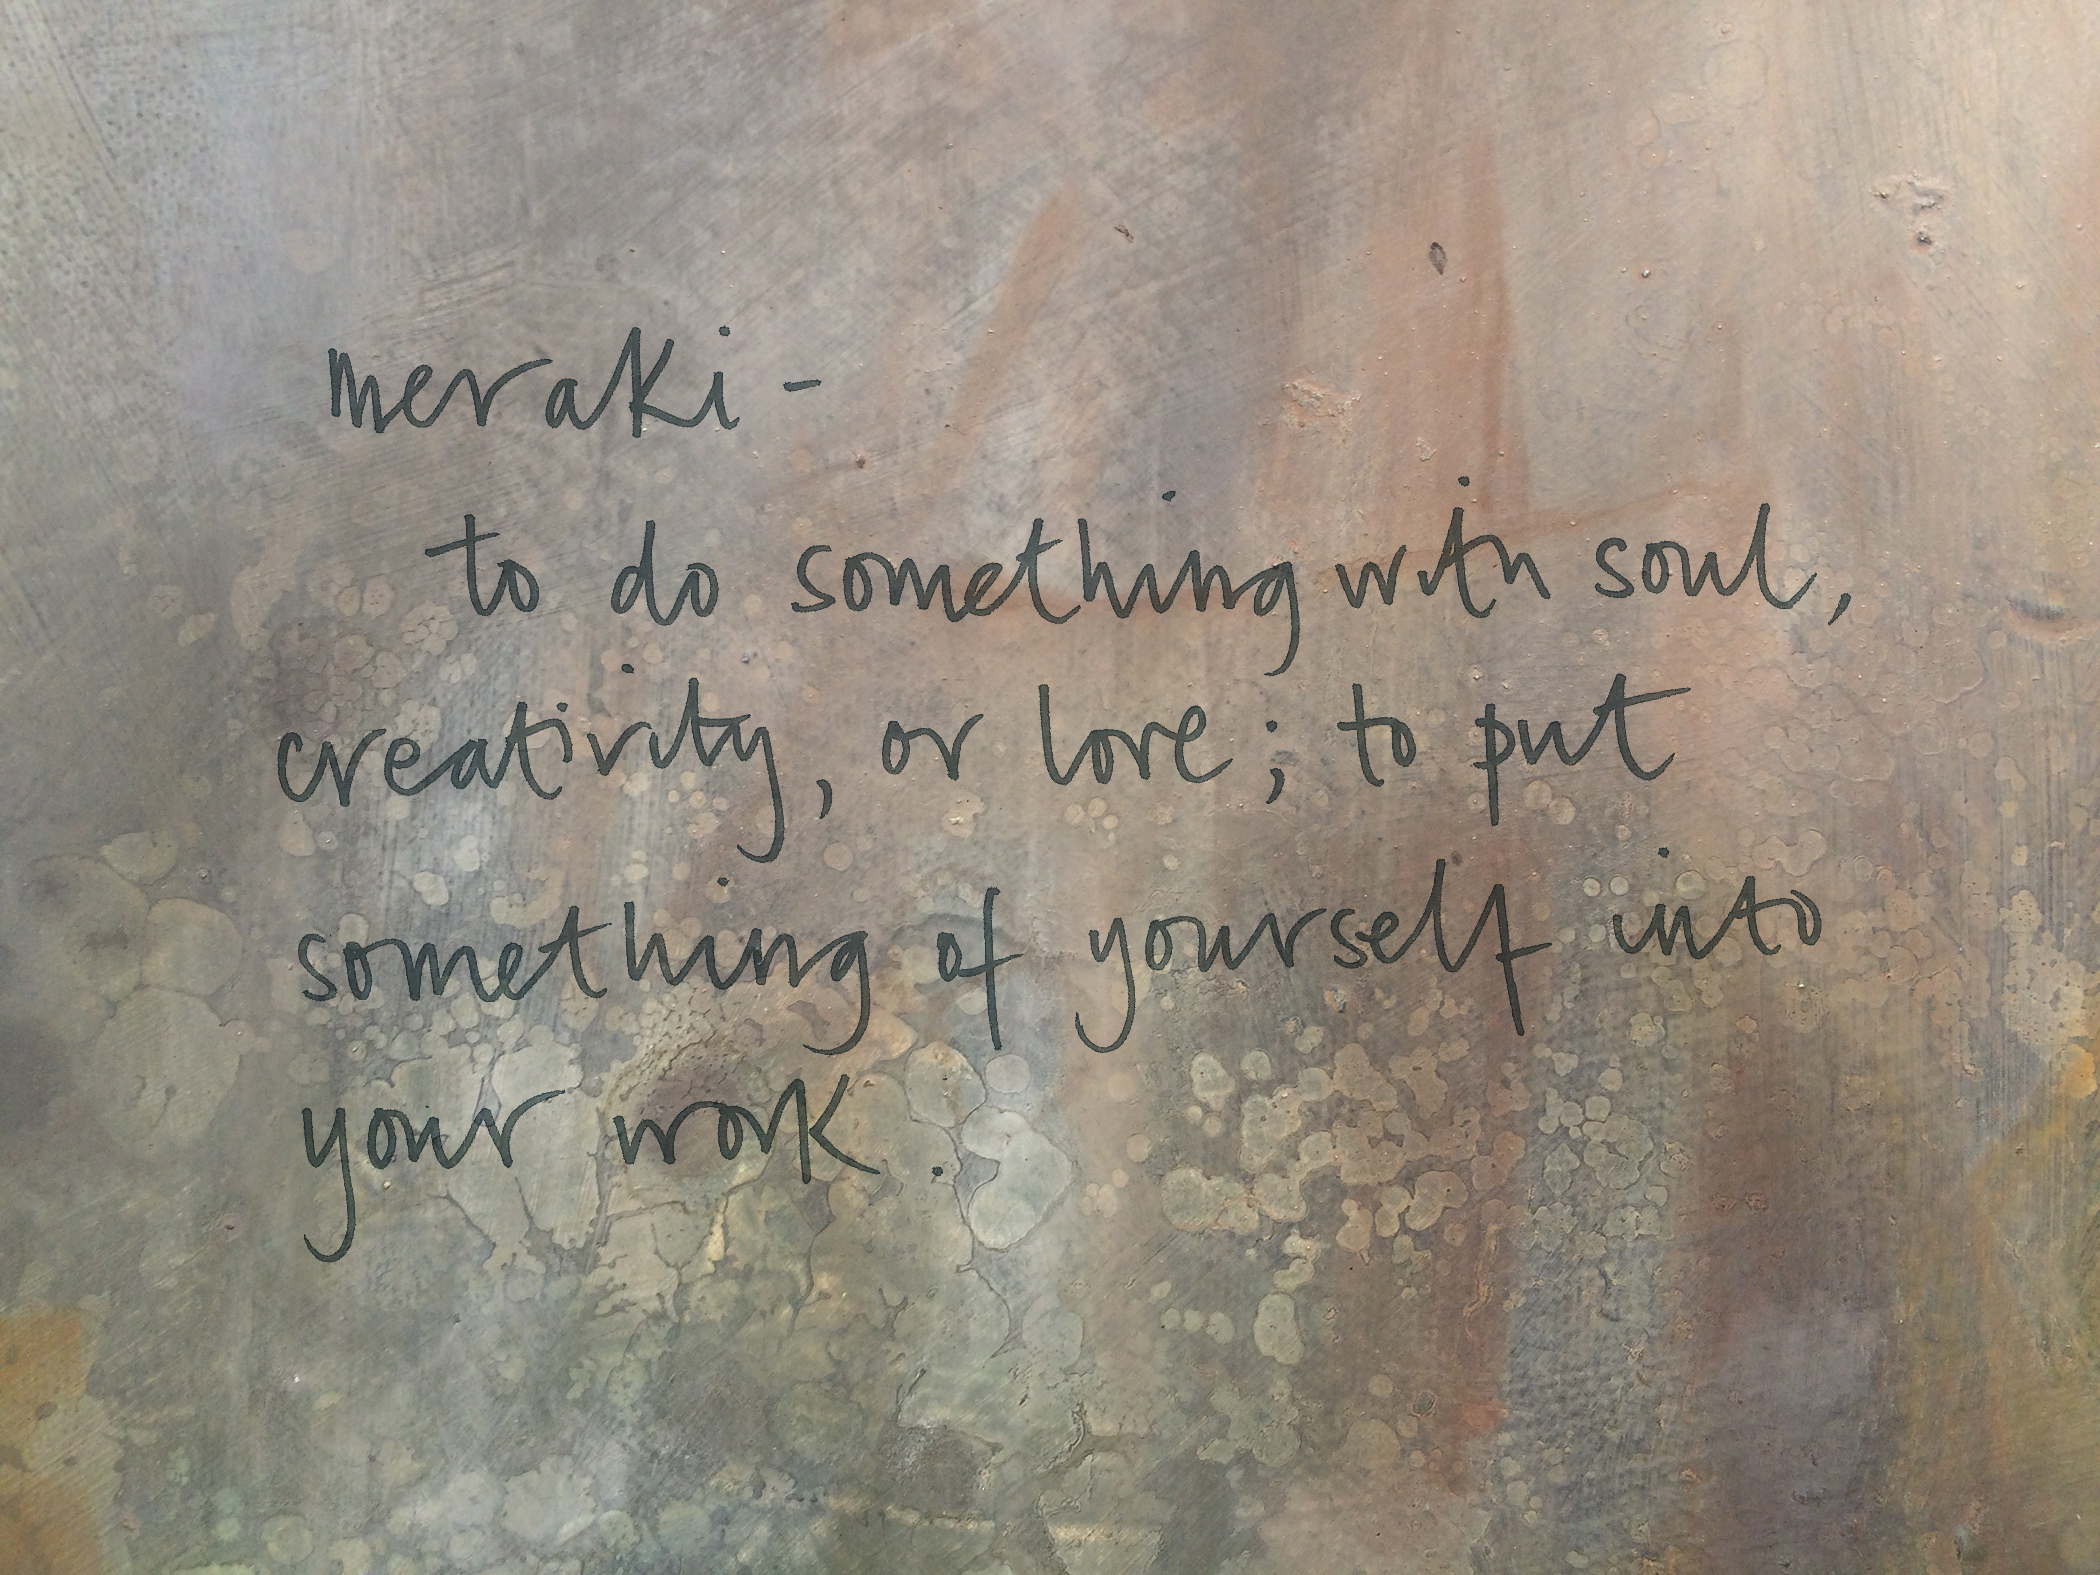 meraki -
to do something with soul,
creativity, or love; to put
something of yourself into
your work.